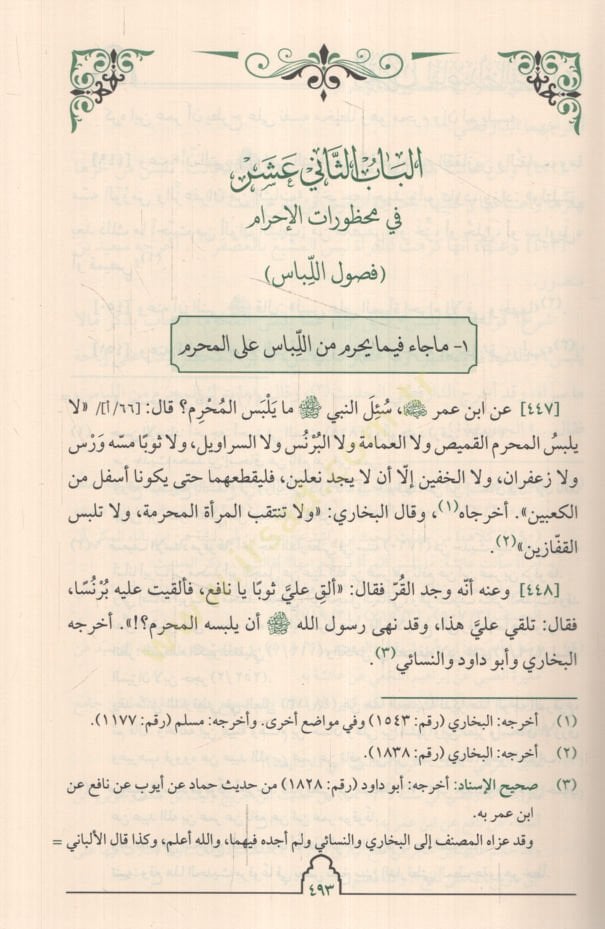 الباب الثاني عشر
في محظورات الإحرام
(فصول اللِّباس)
١- ماجاء فيما يحرم من اللِّباس على المحرم
[٤٤٧] عن ابن عمر ﵁، سُئِلَ النبي ﷺ ما يَلْبَس المُحْرِم؟ قال: [٦٦/أ]/ «لا
يلبسُ المحرم القميص ولا العمامة ولا البُرْنُس ولا السراويل، ولا ثوبًا مسّه وَرْس
ولا زعفران، ولا الخفين إلّا أن لا يجد نعلين، فليقطعهما حتى يكونا أسفل من
الكعبين». أخرجاه(١)، وقال البخاري: «ولا تنتقب المرأة المحرمة، ولا تلبس
القفّازين»(٢).
[٤٤٨] وعنه أنّه وجد القُرّ فقال: «ألقِ عليَّ ثوبًا يا نافع، فألقيت عليه بُرْنُسًا،
فقال: تلقي عليَّ هذا، وقد نهى رسول الله ﷺ أن يلبسه المحرم؟!». أخرجه
البخاري وأبو داود والنسائي(٣).
(١) أخرجه: البخاري (رقم: ١٥٤٣) وفي مواضع أخرى. وأخرجه: مسلم (رقم: ١١٧٧).
(٢) أخرجه: البخاري (رقم: ١٨٣٨).
(٣) صحيح الإسناد: أخرجه: أبو داود (رقم: ١٨٢٨) من حديث حماد عن أيوب عن نافع عن
ابن عمر به.
وقد عزاه المصنف إلى البخاري والنسائي ولم أجده فيهما، والله أعلم، وكذا قال الألباني =
٤٩٣